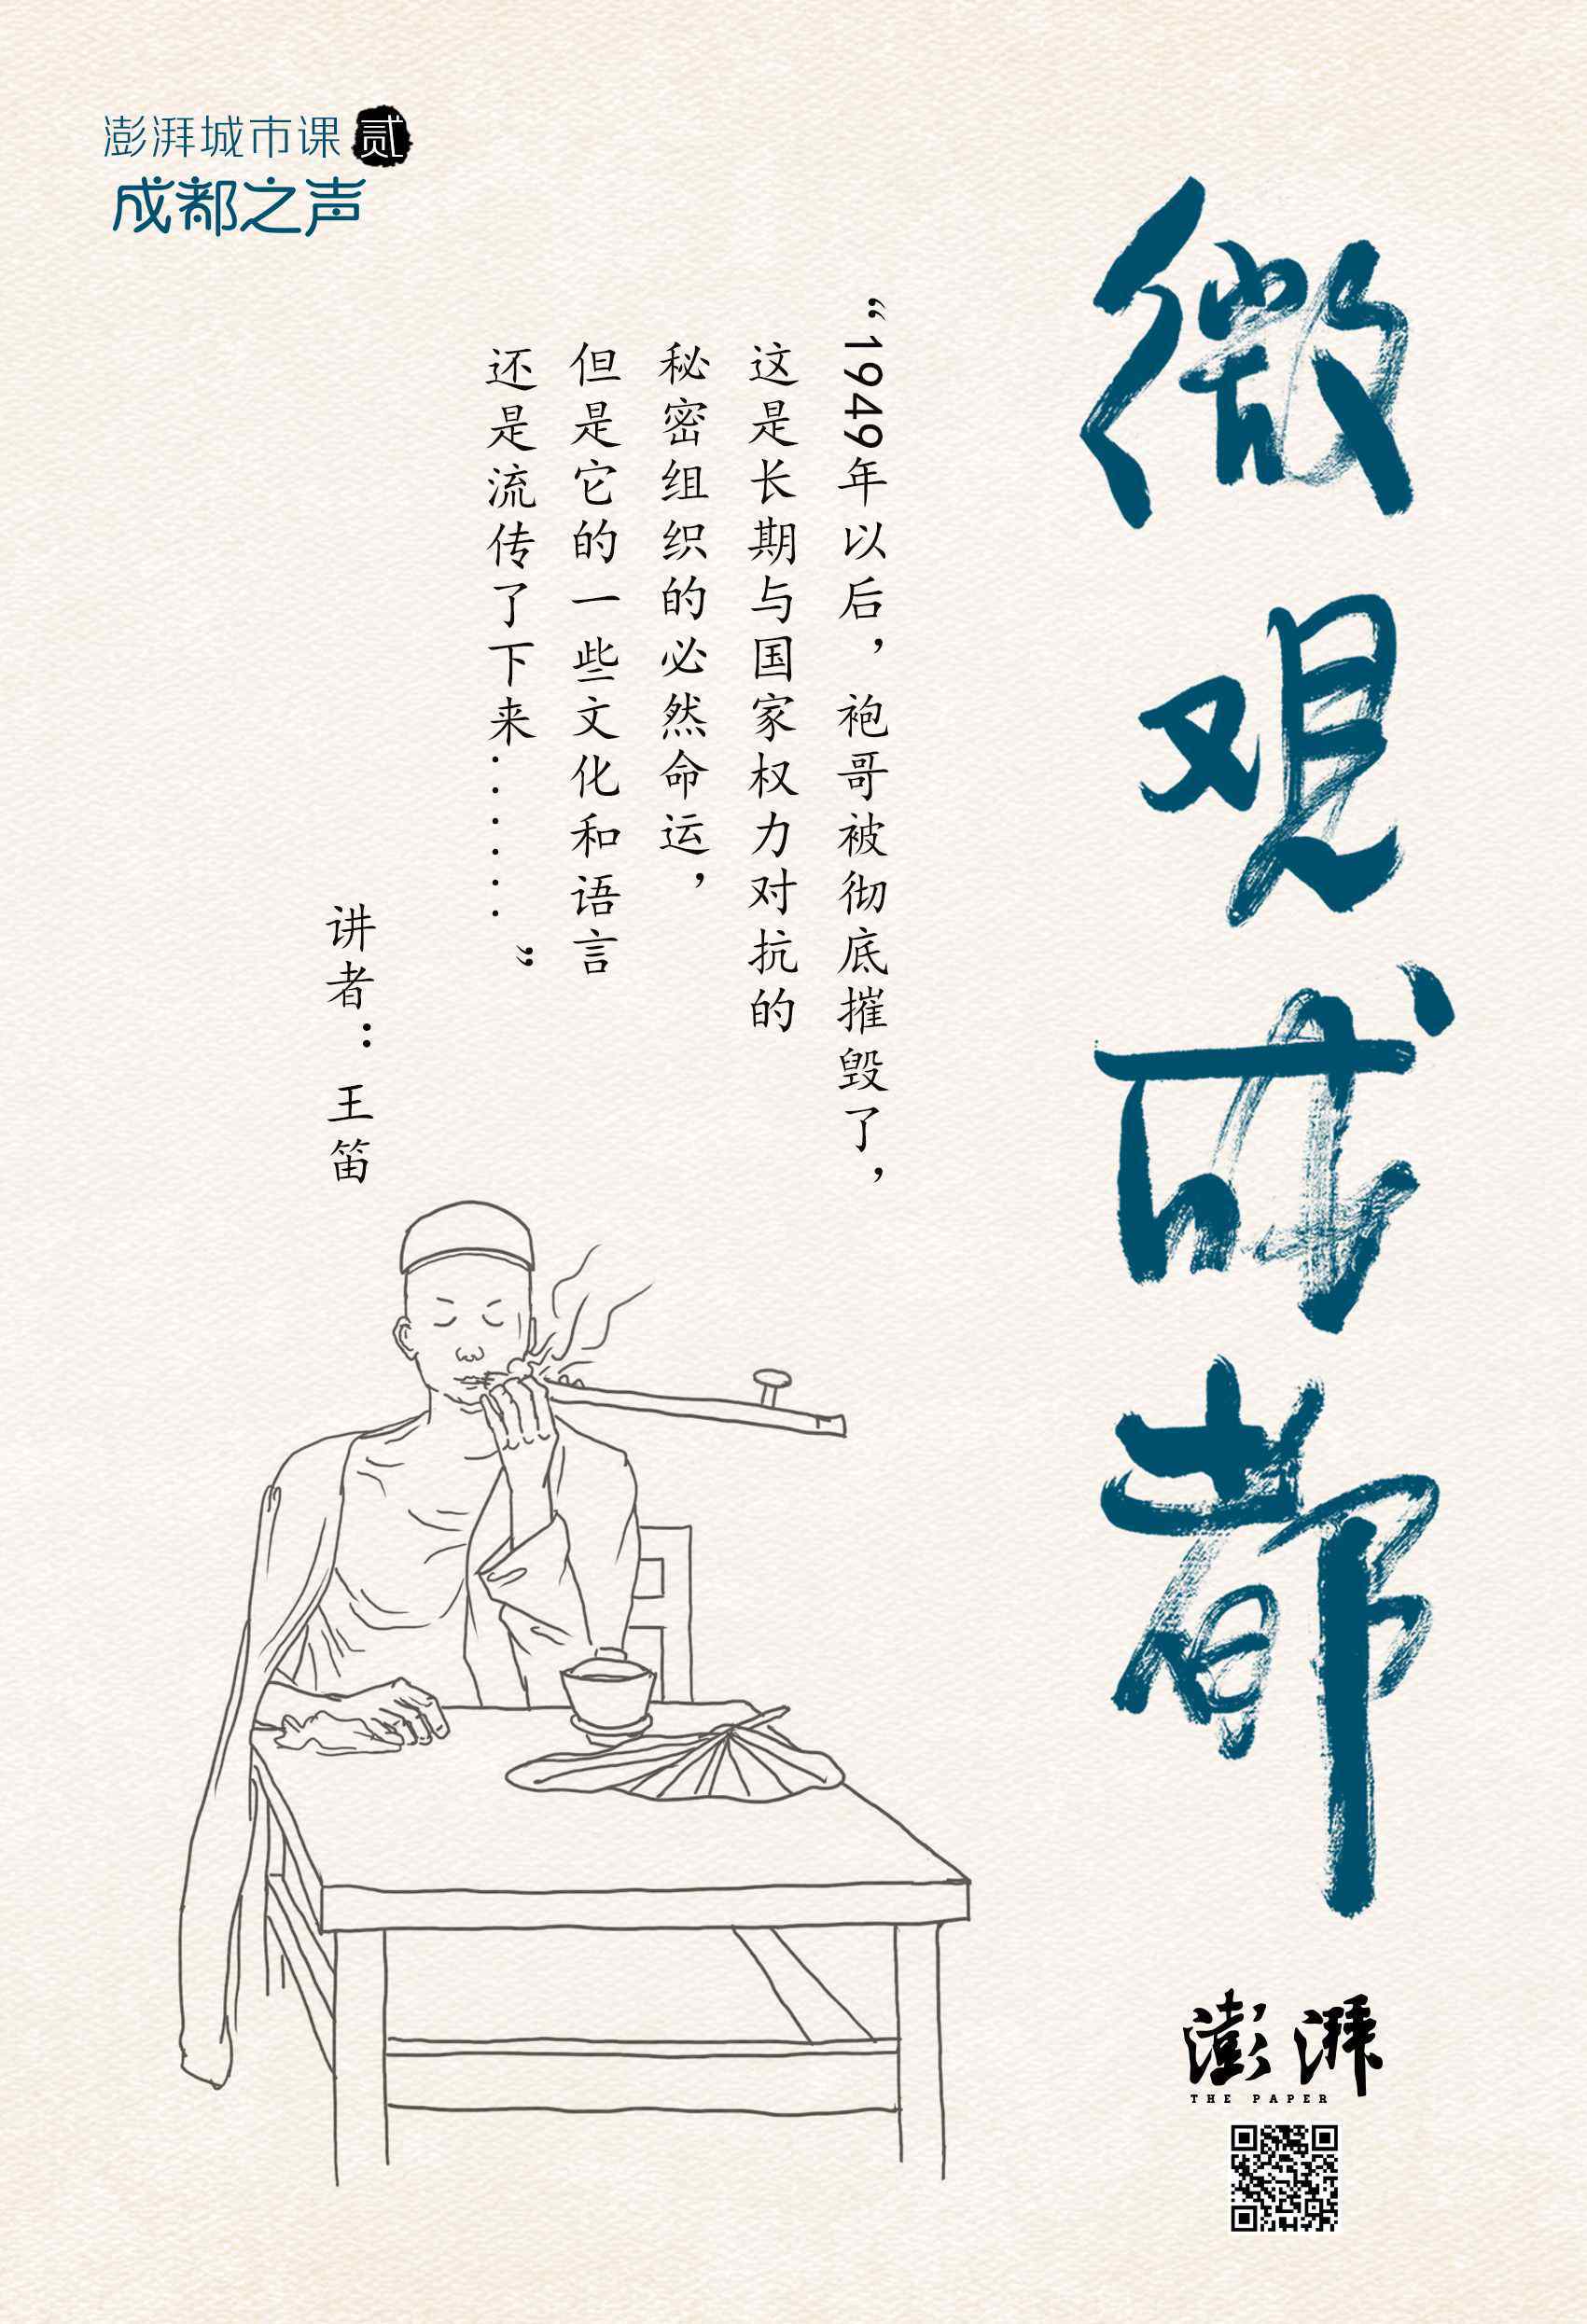 澎湃城市课 贰
成都之声
微观成都
“1949年以后，袍哥被彻底摧毁了，
这是长期与国家权力对抗的
秘密组织的必然命运，
但是它的一些文化和语言
还是流传了下来……”
讲者：王笛
澎湃
THE PAPER